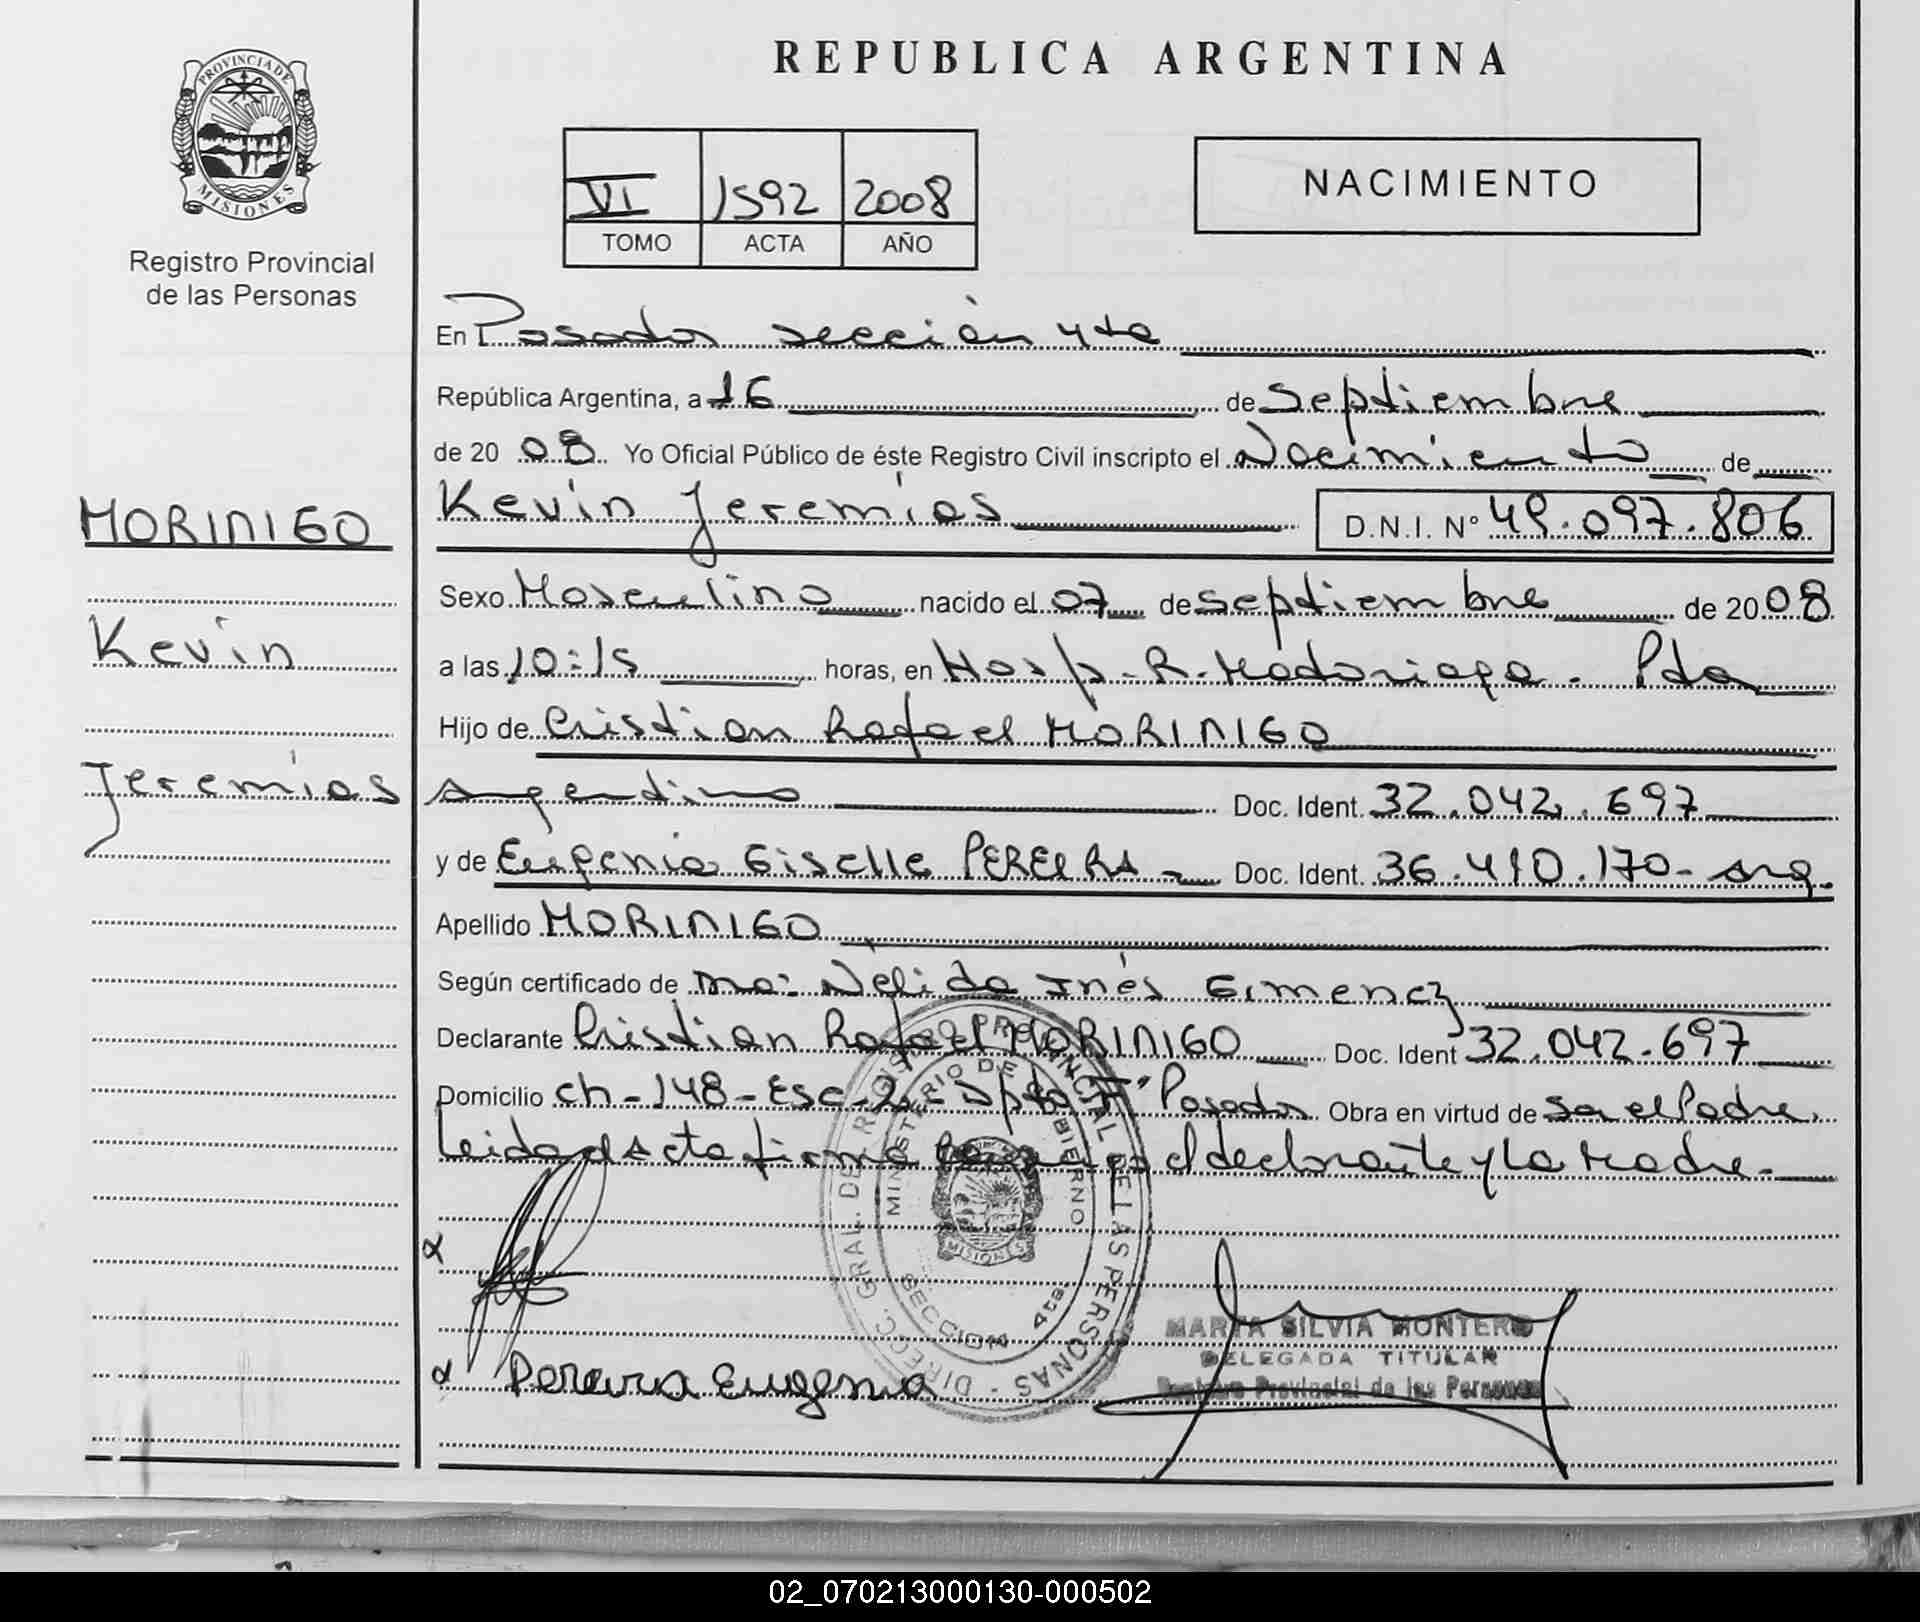 REPUBLICA ARGENTINA
PROVINCIA DE
MISIONES
Registro Provincial
de las Personas
VI 1592 2008
TOMO ACTA AÑO
NACIMIENTO
En Posadas sección 4ta
República Argentina, a 16 de Septiembre
de 20 08 Yo Oficial Público de éste Registro Civil inscripto el Nacimiento de
MORINIGO
Kevin Jeremías D.N.I. Nº 49.097.806
Sexo Masculino nacido el 07 de septiembre de 20 08
Kevin
a las 10:15 horas, en Hosp. R. Madariaga. Pda
Hijo de Cristian Rafael MORINIGO
Jeremías
Argentino Doc. Ident. 32.042.697
y de Eugenia Giselle PEREIRA Doc. Ident. 36.410.170- arg.
Apellido MORINIGO
Según certificado de Nélida Inés Gimenez
Declarante Cristian Rafael MORINIGO Doc. Ident 32.042.697
Domicilio ch-148-Esc-2- Dpto Posadas Obra en virtud de ser el Padre.
Leida el Acta firma el declarante y la Madre.
DIRECC. GRAL. DEL REGISTRO PROVINCIAL DE LAS PERSONAS
MINISTERIO DE GOBIERNO
MISIONES
SECCION 4ta.
MARTA SILVIA MONTERO
DELEGADA TITULAR
Registro Provincial de las Personas
Pereira Eugenia
02_070213000130-000502